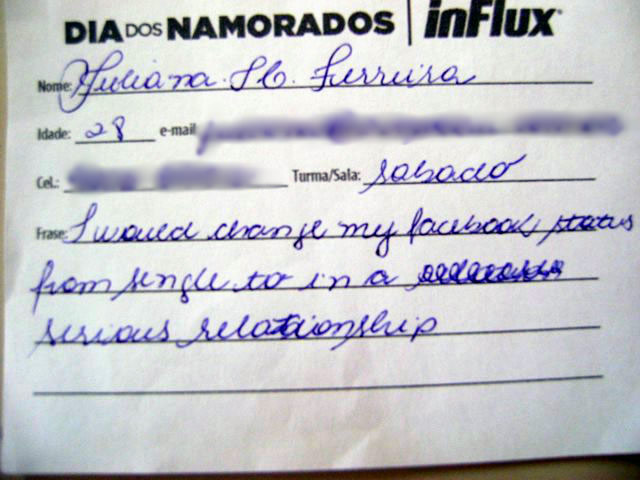 DIA DOS NAMORADOS | inFlux
Nome: Juliana H. Ferreira
Idade: 28 e-mail
Cel.: Turma/Sala: sabado
Frase: I would change my facebook status
from single to in a
serious relationship